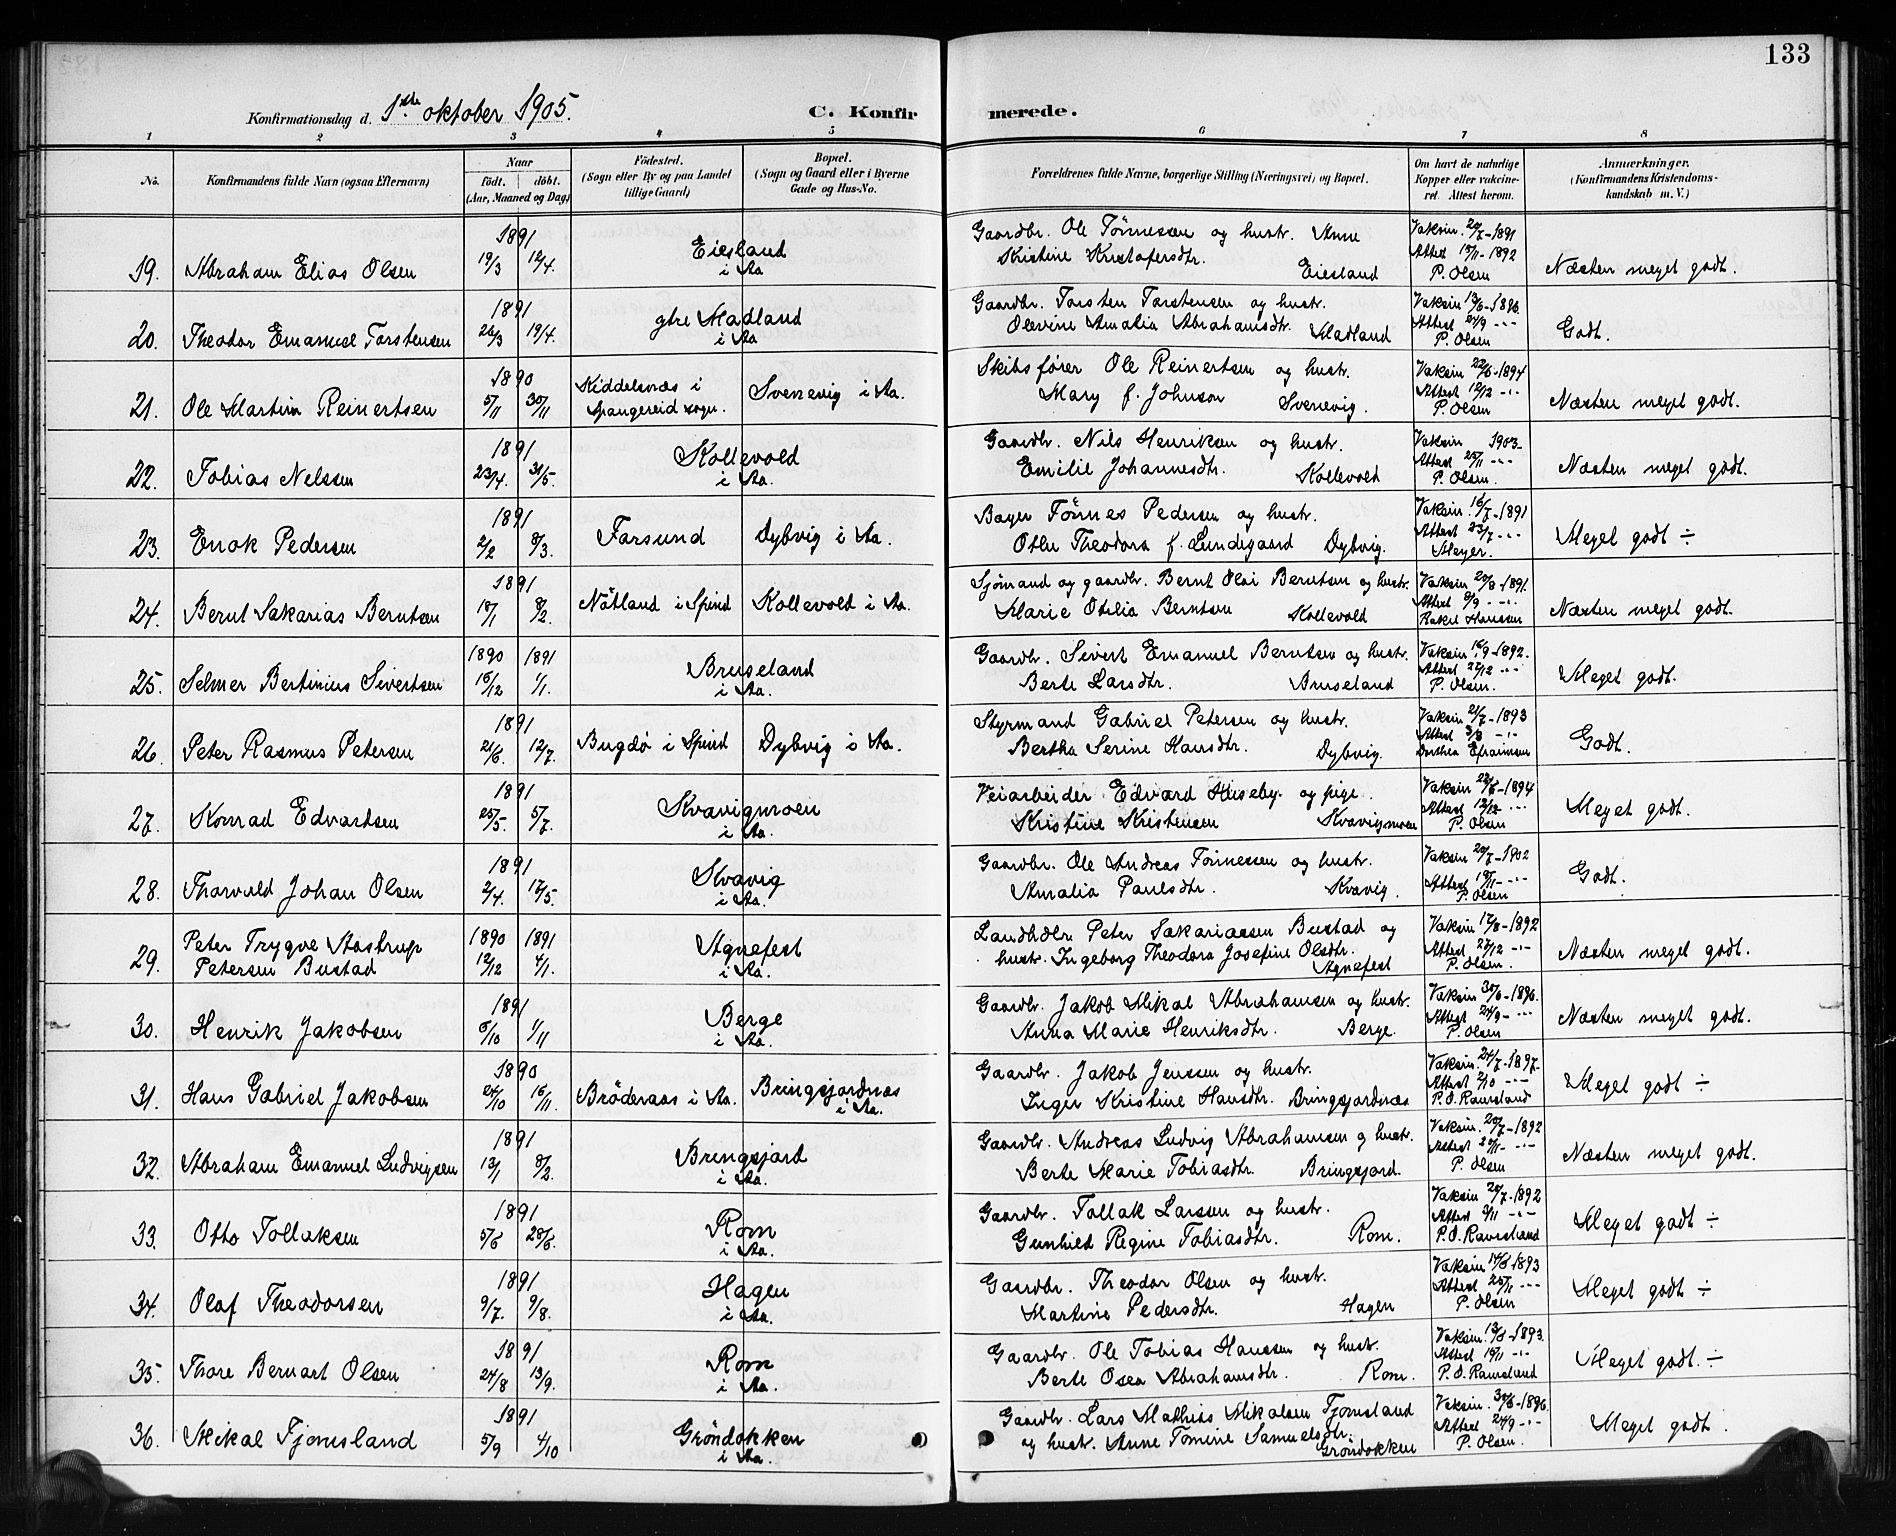 133
Konfirmationsdag d. 1ste oktober 1905.
C. Konfirmerede.
1 2 3 4 5 6 7 8
No. Konfirmandens fulde Navn (ogsaa Efternavn) Naar født. døbt. (Aar, Maaned og Dag) Fødested. (Sogn eller By og paa Landet tillige Gaard) Bopæl. (Sogn og Gaard eller i Byerne Gade og Hus-No.) Forældrenes fulde Navne, borgerlige Stilling (Næringsvei) og Bopæl. Om havt de naturlige Kopper eller vakcineret. Attest herom. Anmærkninger. (Konfirmandens Kristendomskundskab m. V.)
19. Abraham Elias Olsen 1891 19/3 12/4. Eiesland i Aa Gaardbr. Ole Tönnessen og hustr. Anne Kristine Kristofersdtr. Eiesland Vaksin. 20/7-1891 Attest 15/11-1892 P. Olsen Næsten meget godt.
20. Theodor Emanuel Torstensen 1891 26/3 19/4. ytre Madland i Aa Gaardbr. Torsten Torstensen og hustr. Olevine Amalia Abrahamsdtr. Madland Vaksin 13/6-1896. Attest 24/9 -"- P. Olsen Godt.
21. Ole Martin Reinertsen 1890 5/11 30/11 Kiddelsnæs i Spangereid sogn. Svenevig i Aa. Skibsfører Ole Reinertsen og hustr. Mary f. Johnson Svenevig. Vaksin 22/6-1894 Attest 12/12 -"- P. Olsen Næsten meget godt.
22. Tobias Nelsen 1891 23/4. 31/5. Kollevold i Aa. Gaardbr. Nils Henriksen og hustr. Emilie Johannesdtr. Kollevold Vaksin 1903. Attest 25/11 -"- P. Olsen. Næsten meget godt.
23. Enok Pedersen 1891 2/2 8/3. Farsund Dybvig i Aa. Bager Tönnes Pedersen og hustr. Otte Theodora f. Lundegaard Dybvig. Vaksin 16/7-1891 Attest 23/7 -"- Meyer. Meget godt ÷
24. Bernt Sakarias Berntsen 1891 18/1 8/2. Nötland i Spind Kollevold i Aa. Sjömand og gaardbr. Bernt Olai Berntsen og hustr. Marie Otilia Berntsen Kollevold Vaksin 20/8-1891. Attest 8/9 -"- Rakel Hanssen Næsten meget godt.
25. Selmer Bertinius Sivertsen 1890 16/12 1891 1/1. Bruseland i Aa. Gaardbr. Sivert Emanuel Berntsen og hustr. Berte Larsdtr. Bruseland Vaksin. 16/9-1892. Attest 22/12 -"- P. Olsen. Meget godt.
26. Peter Rasmus Petersen 1891 21/6. 12/7. Bugdö i Spind Dybvig i Aa. Styrmand Gabriel Petersen og hustr. Bertha Serine Hansdtr. Dybvig. Vaksin 21/7-1893 Attest 3/8 -"- Dorthea Efraimsen Godt.
27. Konrad Edvardsen 1891 25/5. 5/7. Kvavigmoen i Aa. Veiarbeider Edvard Huseby og pige Kristine Kristensen Kvavigmoen Vaksin 22/6-1894 Attest 12/12 -"- P. Olsen Meget godt.
28. Thorvald Johan Olsen 1891 2/4. 17/5. Kvavig i Aa. Gaardbr. Ole Andreas Tönnessen og hustr. Amalia Paulsdtr. Kvavig. Vaksin 20/7-1902 Attest 18/11 -"- P. Olsen Godt.
29. Peter Trygve Aastrup Petersen Bustad 1890 12/12 1891 4/1. Agnefest i Aa. Landhdlr. Peter Sakariassen Bustad og hustr. Ingeborg Theodora Josefine Olsdtr. Agnefest Vaksin 17/8-1892 Attest 22/12 -"- P. Olsen. Næsten meget godt.
30. Henrik Jakobsen 1891 6/10 1/11 Berge i Aa. Gaardbr. Jakob Mikal Abrahamsen og hustr. Anna Marie Henriksdtr. Berge. Vaksin 30/6-1896. Attest 24/9 -"- P. Olsen Næsten meget godt.
31. Hans Gabriel Jakobsen 1890 24/10 16/11. Brödenaas i Aa. Bringsjordnæs i Aa. Gaardbr. Jakob Jenssen og hustr. Inger Kristine Hansdtr. Bringsjordnæs Vaksin. 24/7-1897. Attest 2/10 -"- P. O. Raustland Meget godt ÷
32. Abraham Emanuel Ludvigsen 1891 13/1 8/2. Bringsjord i Aa. Gaardbr. Andreas Ludvig Abrahamsen og hustr. Berte Marie Tobiasdtr. Bringsjord. Vaksin. 20/7-1892 Attest 20/11 -"- P. Olsen Næsten meget godt.
33. Otto Tollaksen 1891 5/6 28/6. Rom i Aa. Gaardbr. Tollak Larsen og hustr. Gunhild Regine Tobiasdtr. Rom. Vaksin 20/7-1892 Attest 9/11 -"- P. O. Raustland Meget godt ÷
34. Olaf Theodorsen 1891 9/7. 9/8. Hagen i Aa. Gaardbr. Theodor Olsen og hustr. Martine Pedersdtr. Hagen Vaksin 14/6 1893 Attest 25/11 -"- P. Olsen Meget godt ÷
35. Thore Bernart Olsen 1891 24/8 13/9. Rom i Aa. Gaardbr. Ole Tobias Hanssen og hustr. Berte Osea Abrahamsdtr. Rom. Vaksin. 13/6-1893. Attest 19/11 -"- P. O. Raustland Meget godt. ÷
36. Mikal Fjomsland 1891 5/9 4/10 Gröndokken i Aa. Gaardbr. Lars Mathias Mikalsen Fjomsland og hustr. Anne Tomine Samuelsdtr. Gröndokken Vaksin. 30/6-1896. Attest 24/9 -"- P. Olsen. Meget godt.